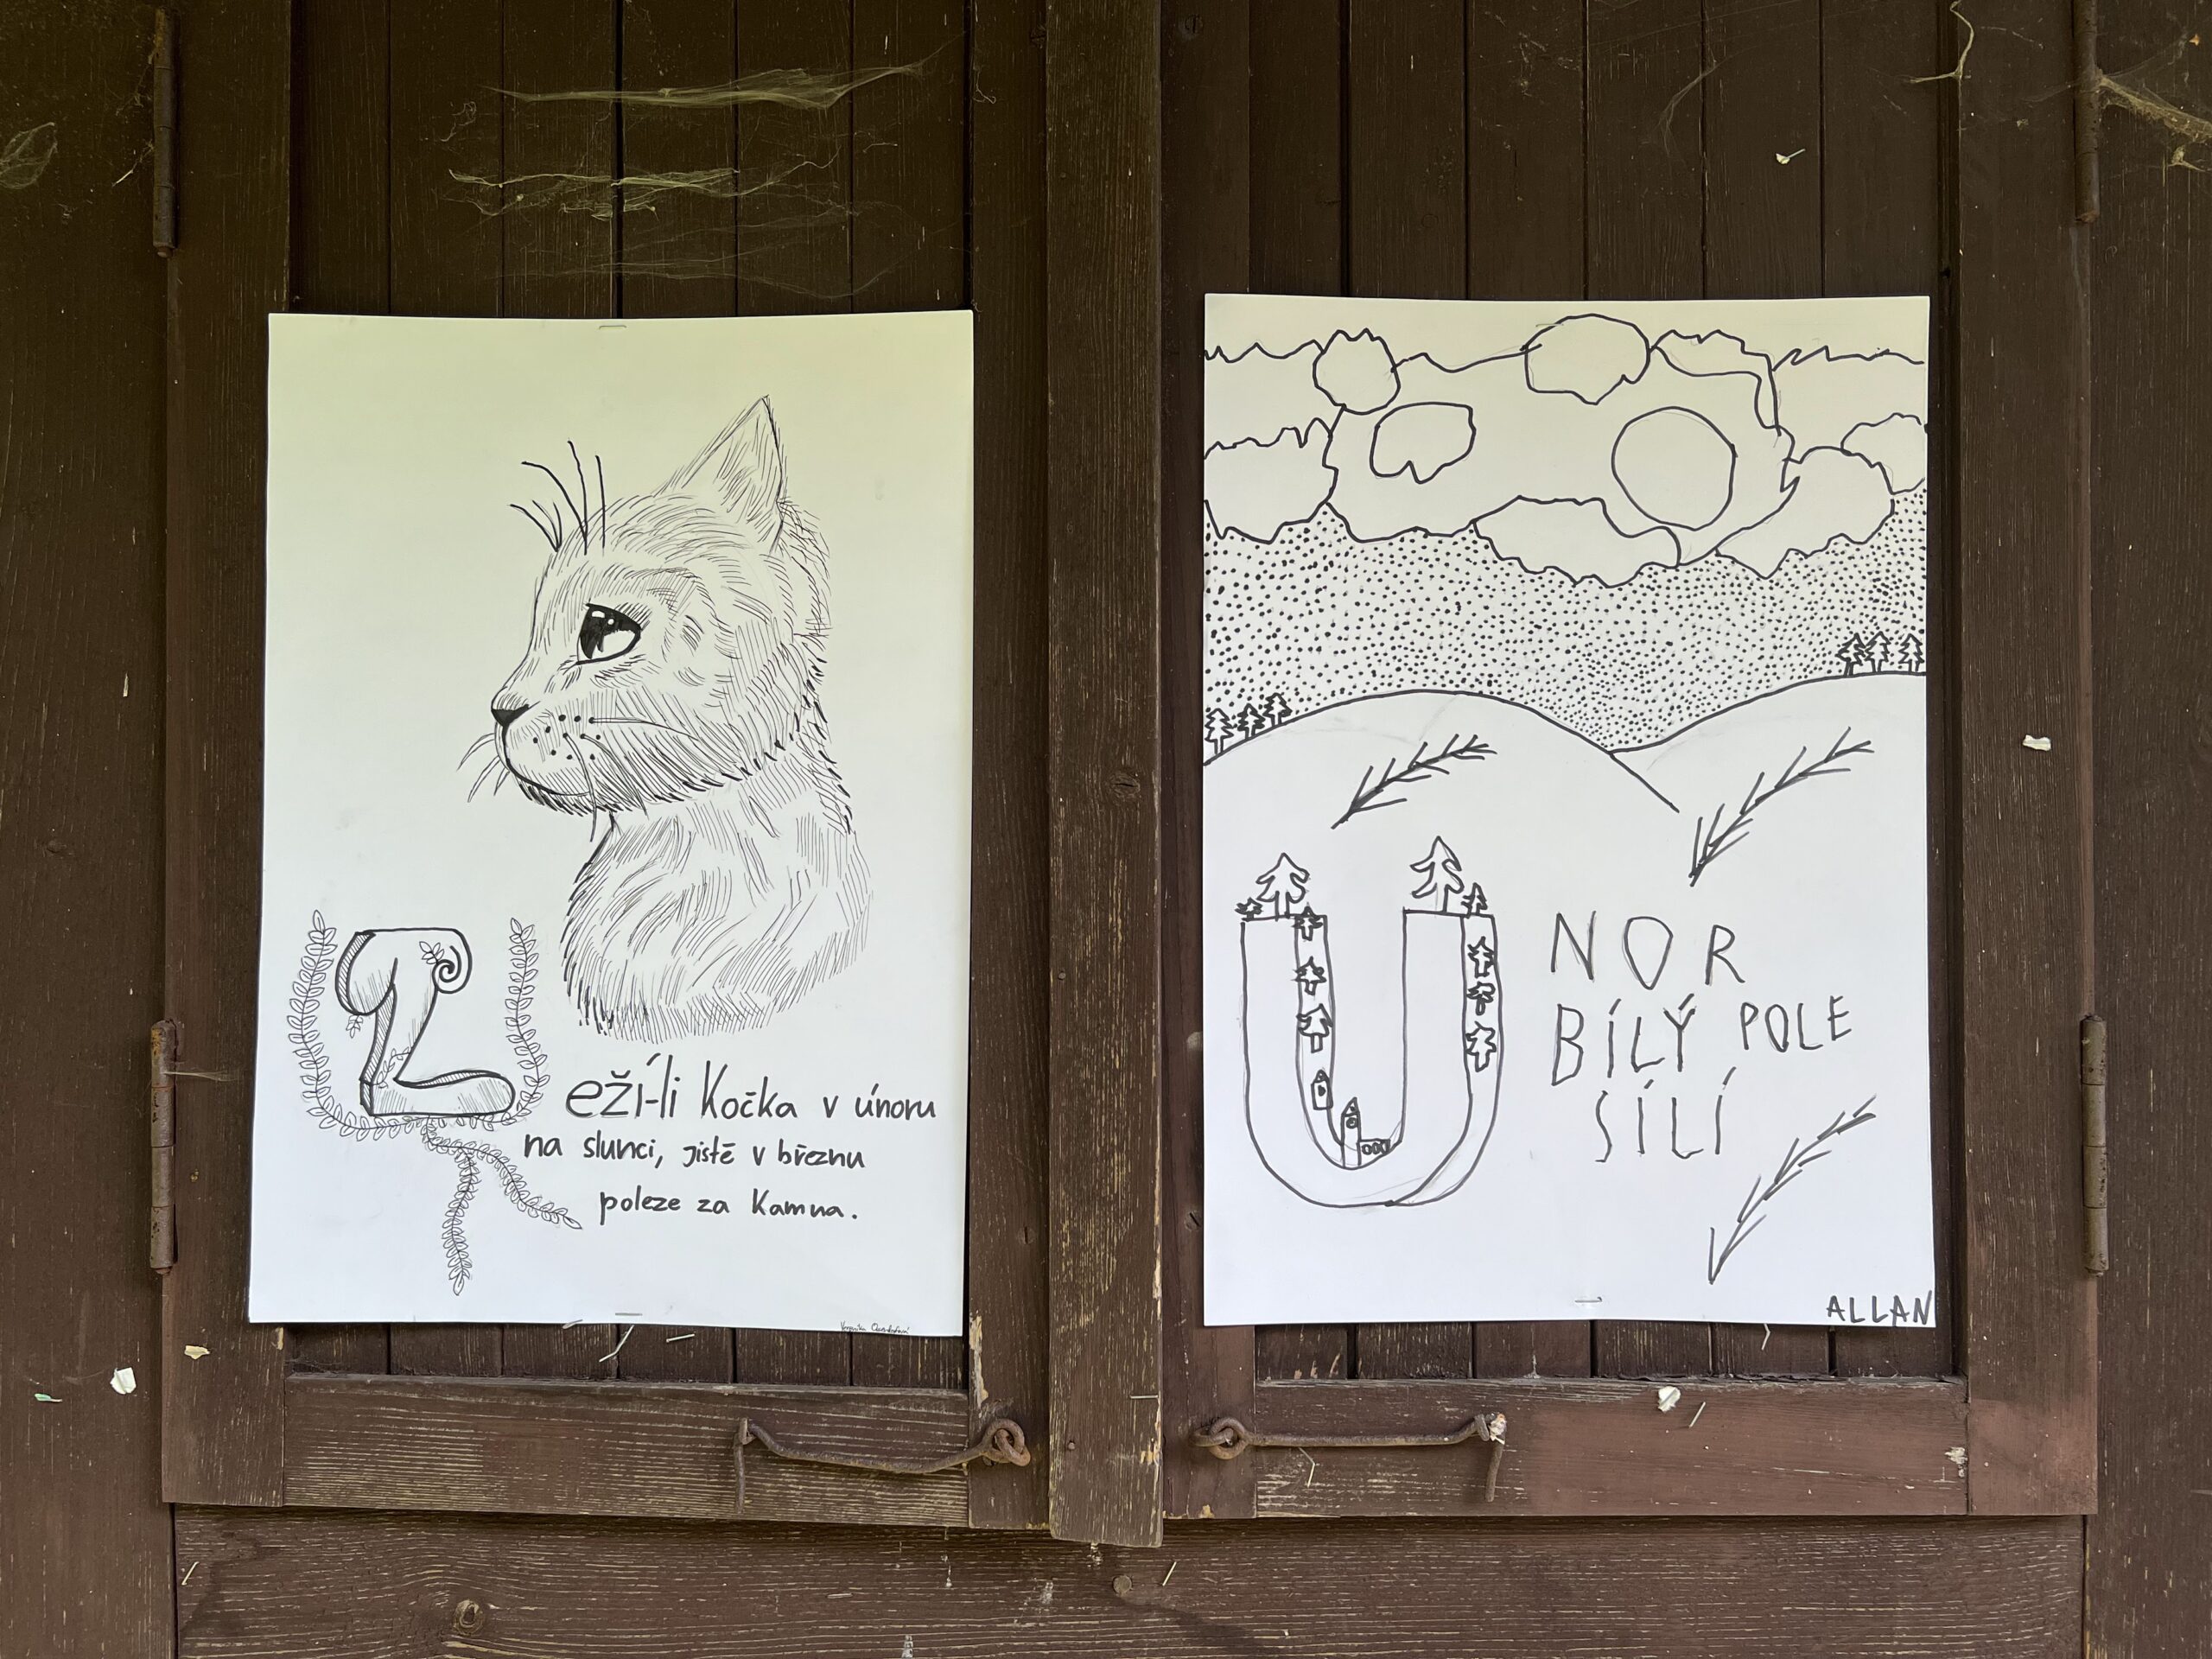 Leží-li Kočka v únoru
na slunci, jistě v březnu
poleze za Kamna.
ÚNOR
BÍLÝ POLE
SÍLÍ
ALLAN